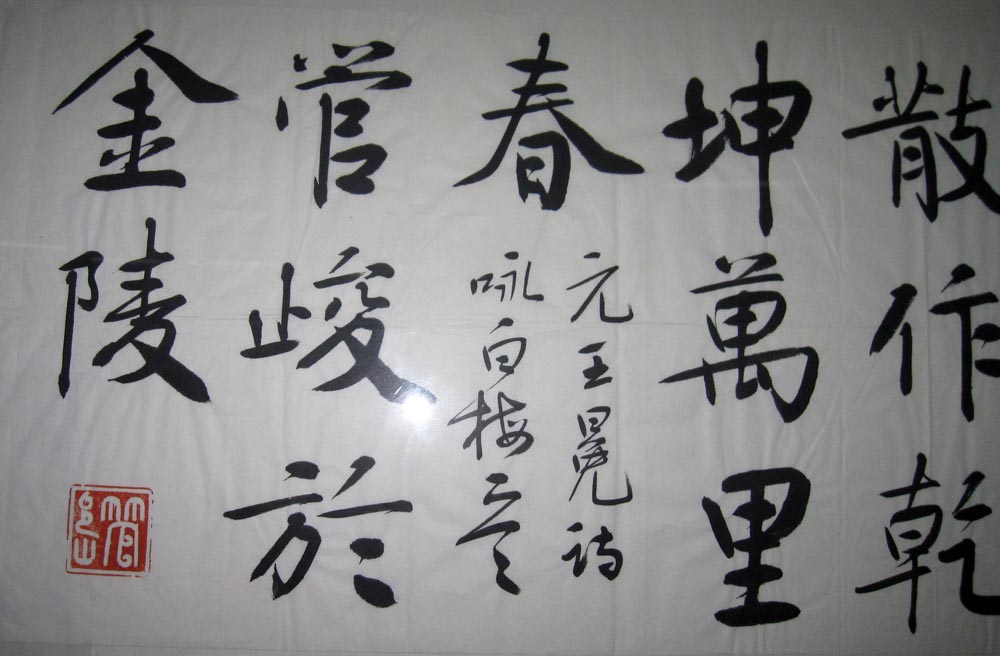 散作乾
坤萬里
春
元王冕詩
咏白梅
管峻於
金陵
管峻